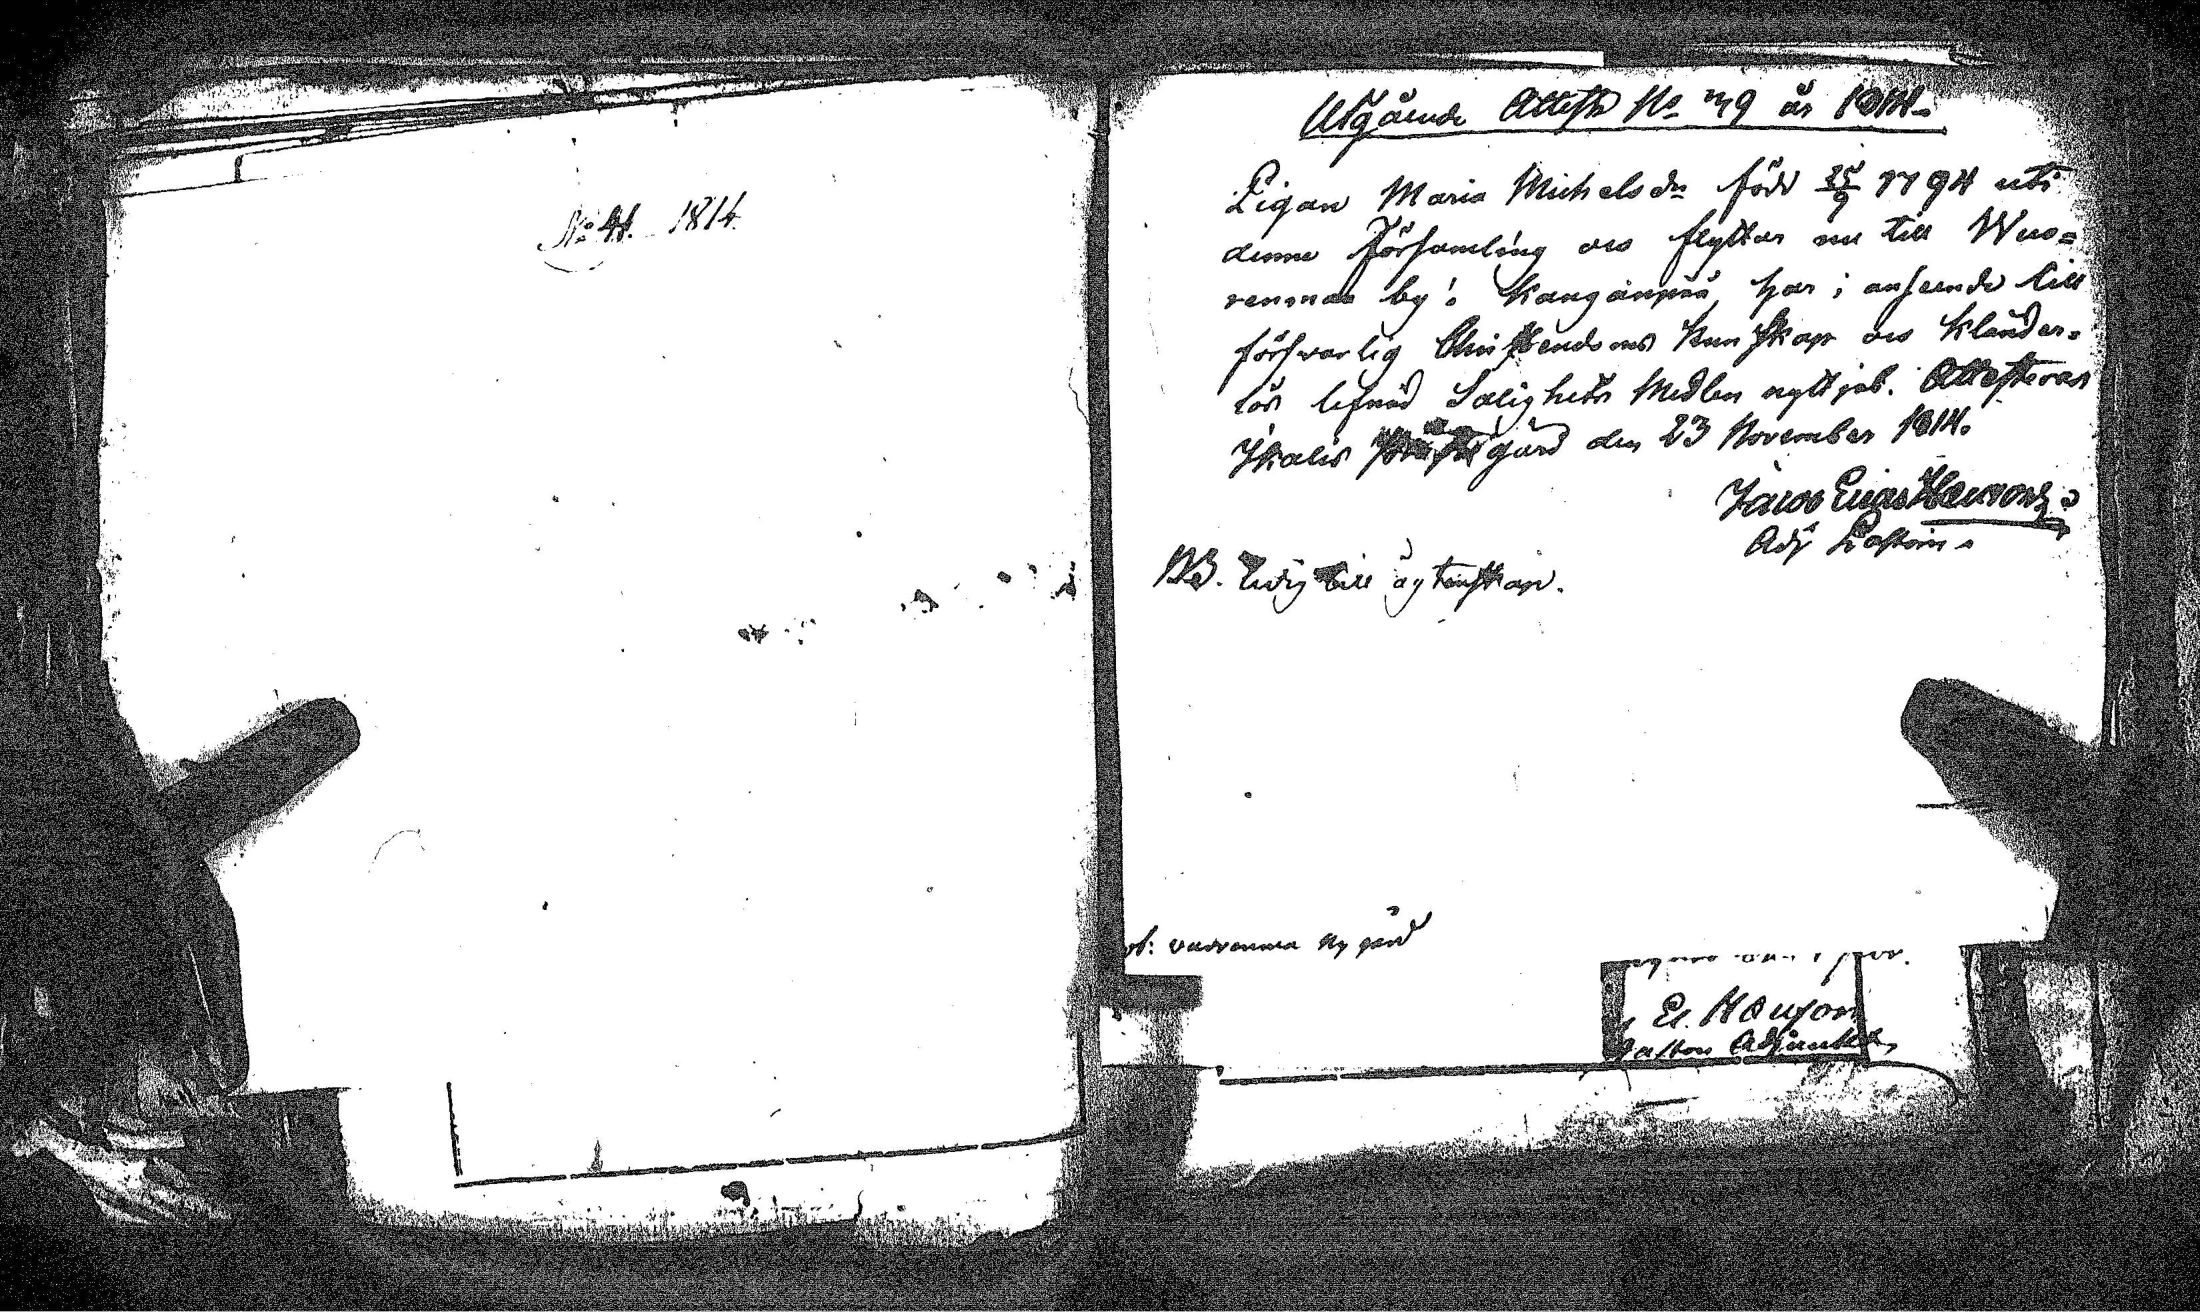 No 41. 1814.
Utgående Attest No 49 år 1814.
Pigan Maria Michelsdr född 25/9 1794 uti
denne Församling och flyttar nu till Wuo=
renmaa by i Kanganpää, har i anseende till
försvarlig Christendoms kunskap och klander=
lös lefnad Salighets Medlen nyttjat. Attesteras
Ikalis gård den 23 November 1814.
Adj Pastor
NB. ledig till ägtenskap.
vuorenmaa Nygård
El.
Pastors Adjunkt